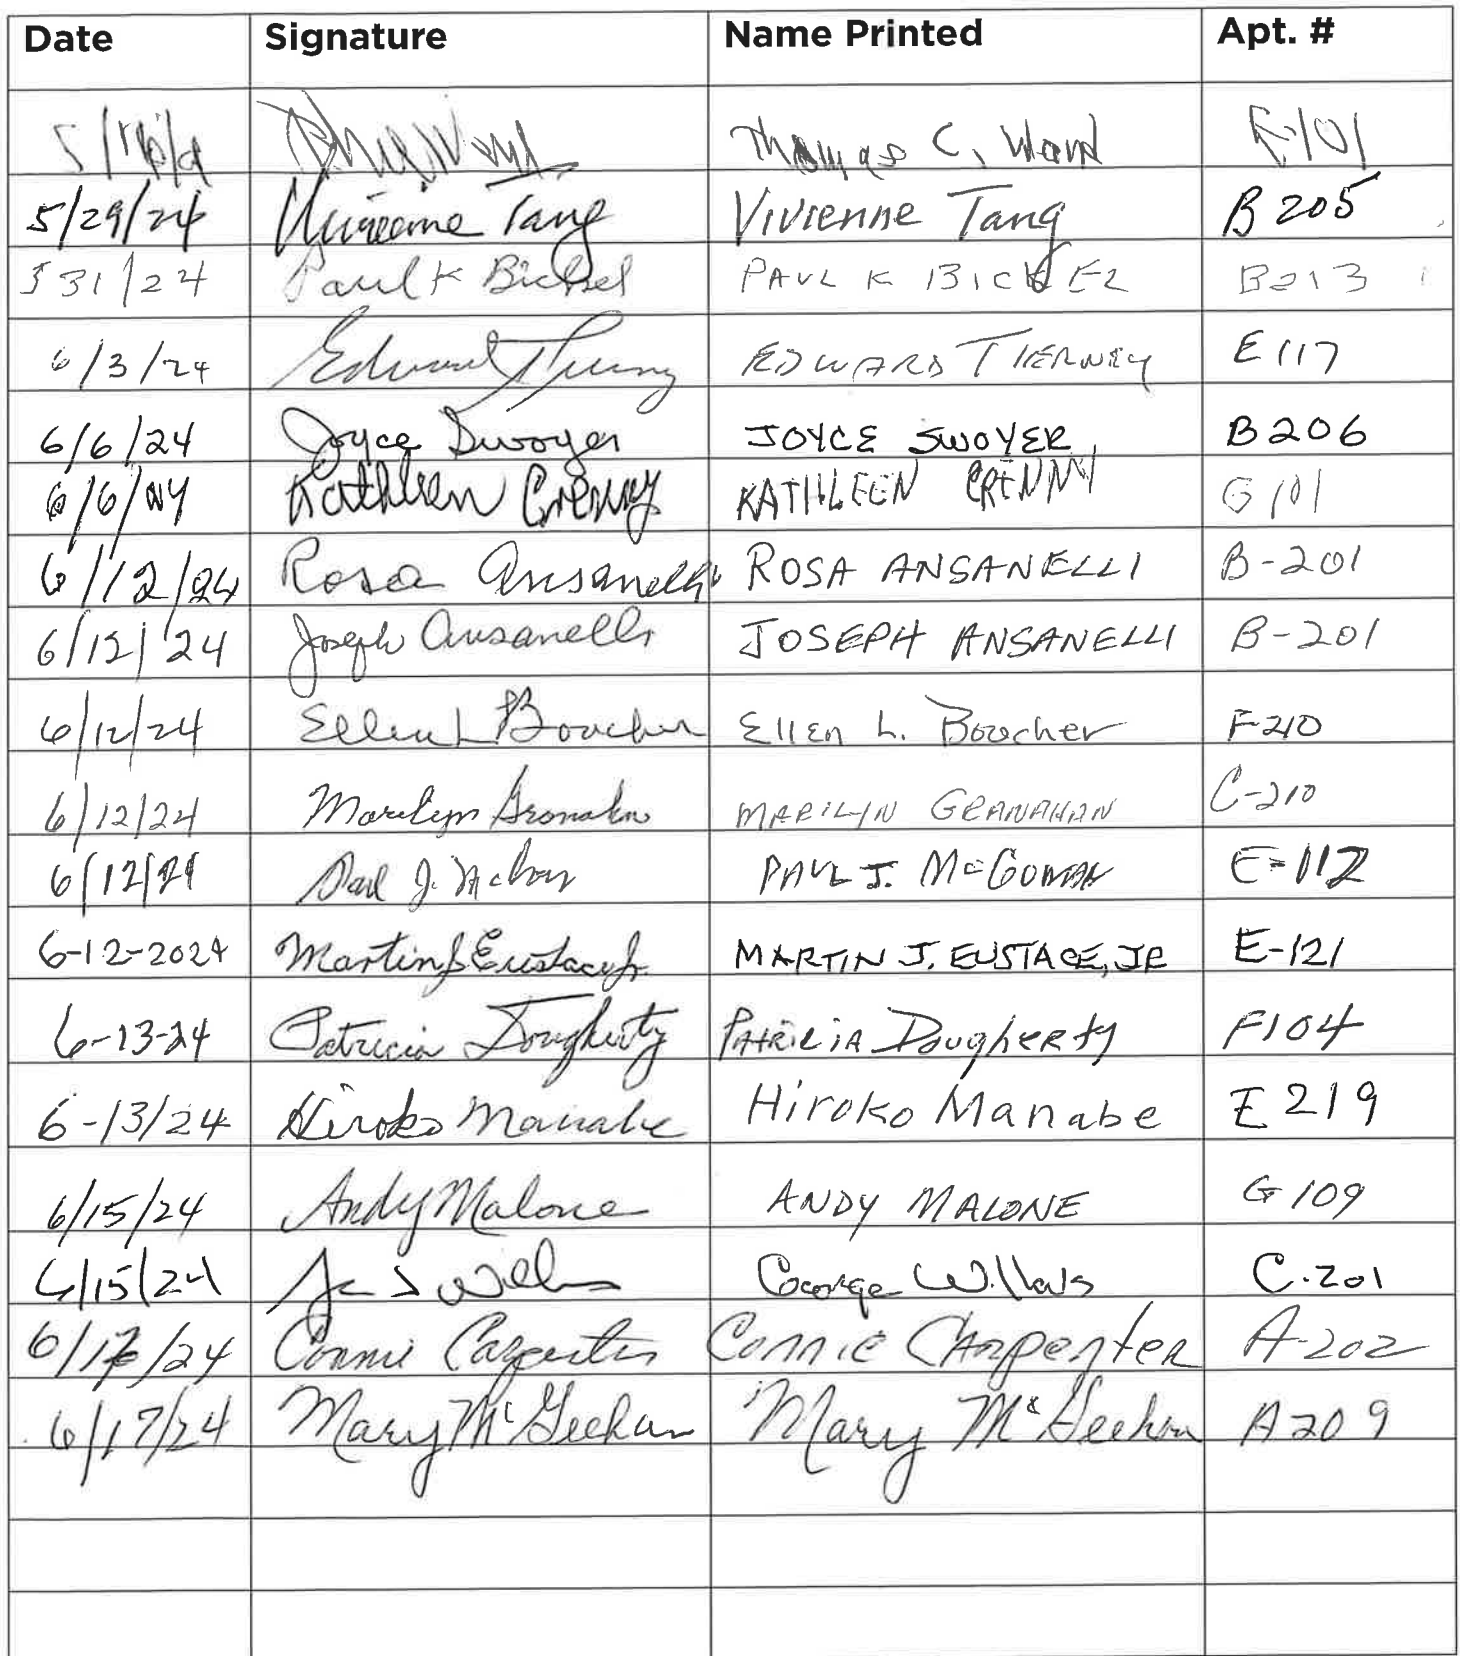 Date Signature Name Printed Apt. #
Thomas C. Ward
5/29/24 Vivienne Tang Vivienne Tang B 205
5 31/24 Paul K Bickel PAUL K BICKEL B213
6/3/24 Edward Tierney EDWARD TIERNEY E 117
6/6/24 Joyce Swoyer JOYCE SWOYER B206
6/6/24 Kathleen Crenny KATHLEEN CRENNY G101
6/12/24 Rosa Ansanelli ROSA ANSANELLI B-201
6/12/24 Joseph Ansanelli JOSEPH ANSANELLI B-201
6/12/24 Ellen L Boucher Ellen L. Boucher F-210
6/12/24 Marilyn Granahan MARILYN GRANAHAN C-210
6/12/24 Paul J. PAUL J. McGOWAN E-112
6-12-2024 Martin J Eustace Jr. MARTIN J. EUSTACE, JR E-121
6-13-24 Patricia Dougherty PATRICIA Dougherty F104
6-13/24 Hiroko Manabe Hiroko Manabe E 219
6/15/24 Andy Malone ANDY MALONE G 109
6/15/24 George C.201
6/17/24 Connie Carpenter Connie Carpenter A-202
6/17/24 Mary McGeehan Mary McGeehan A209